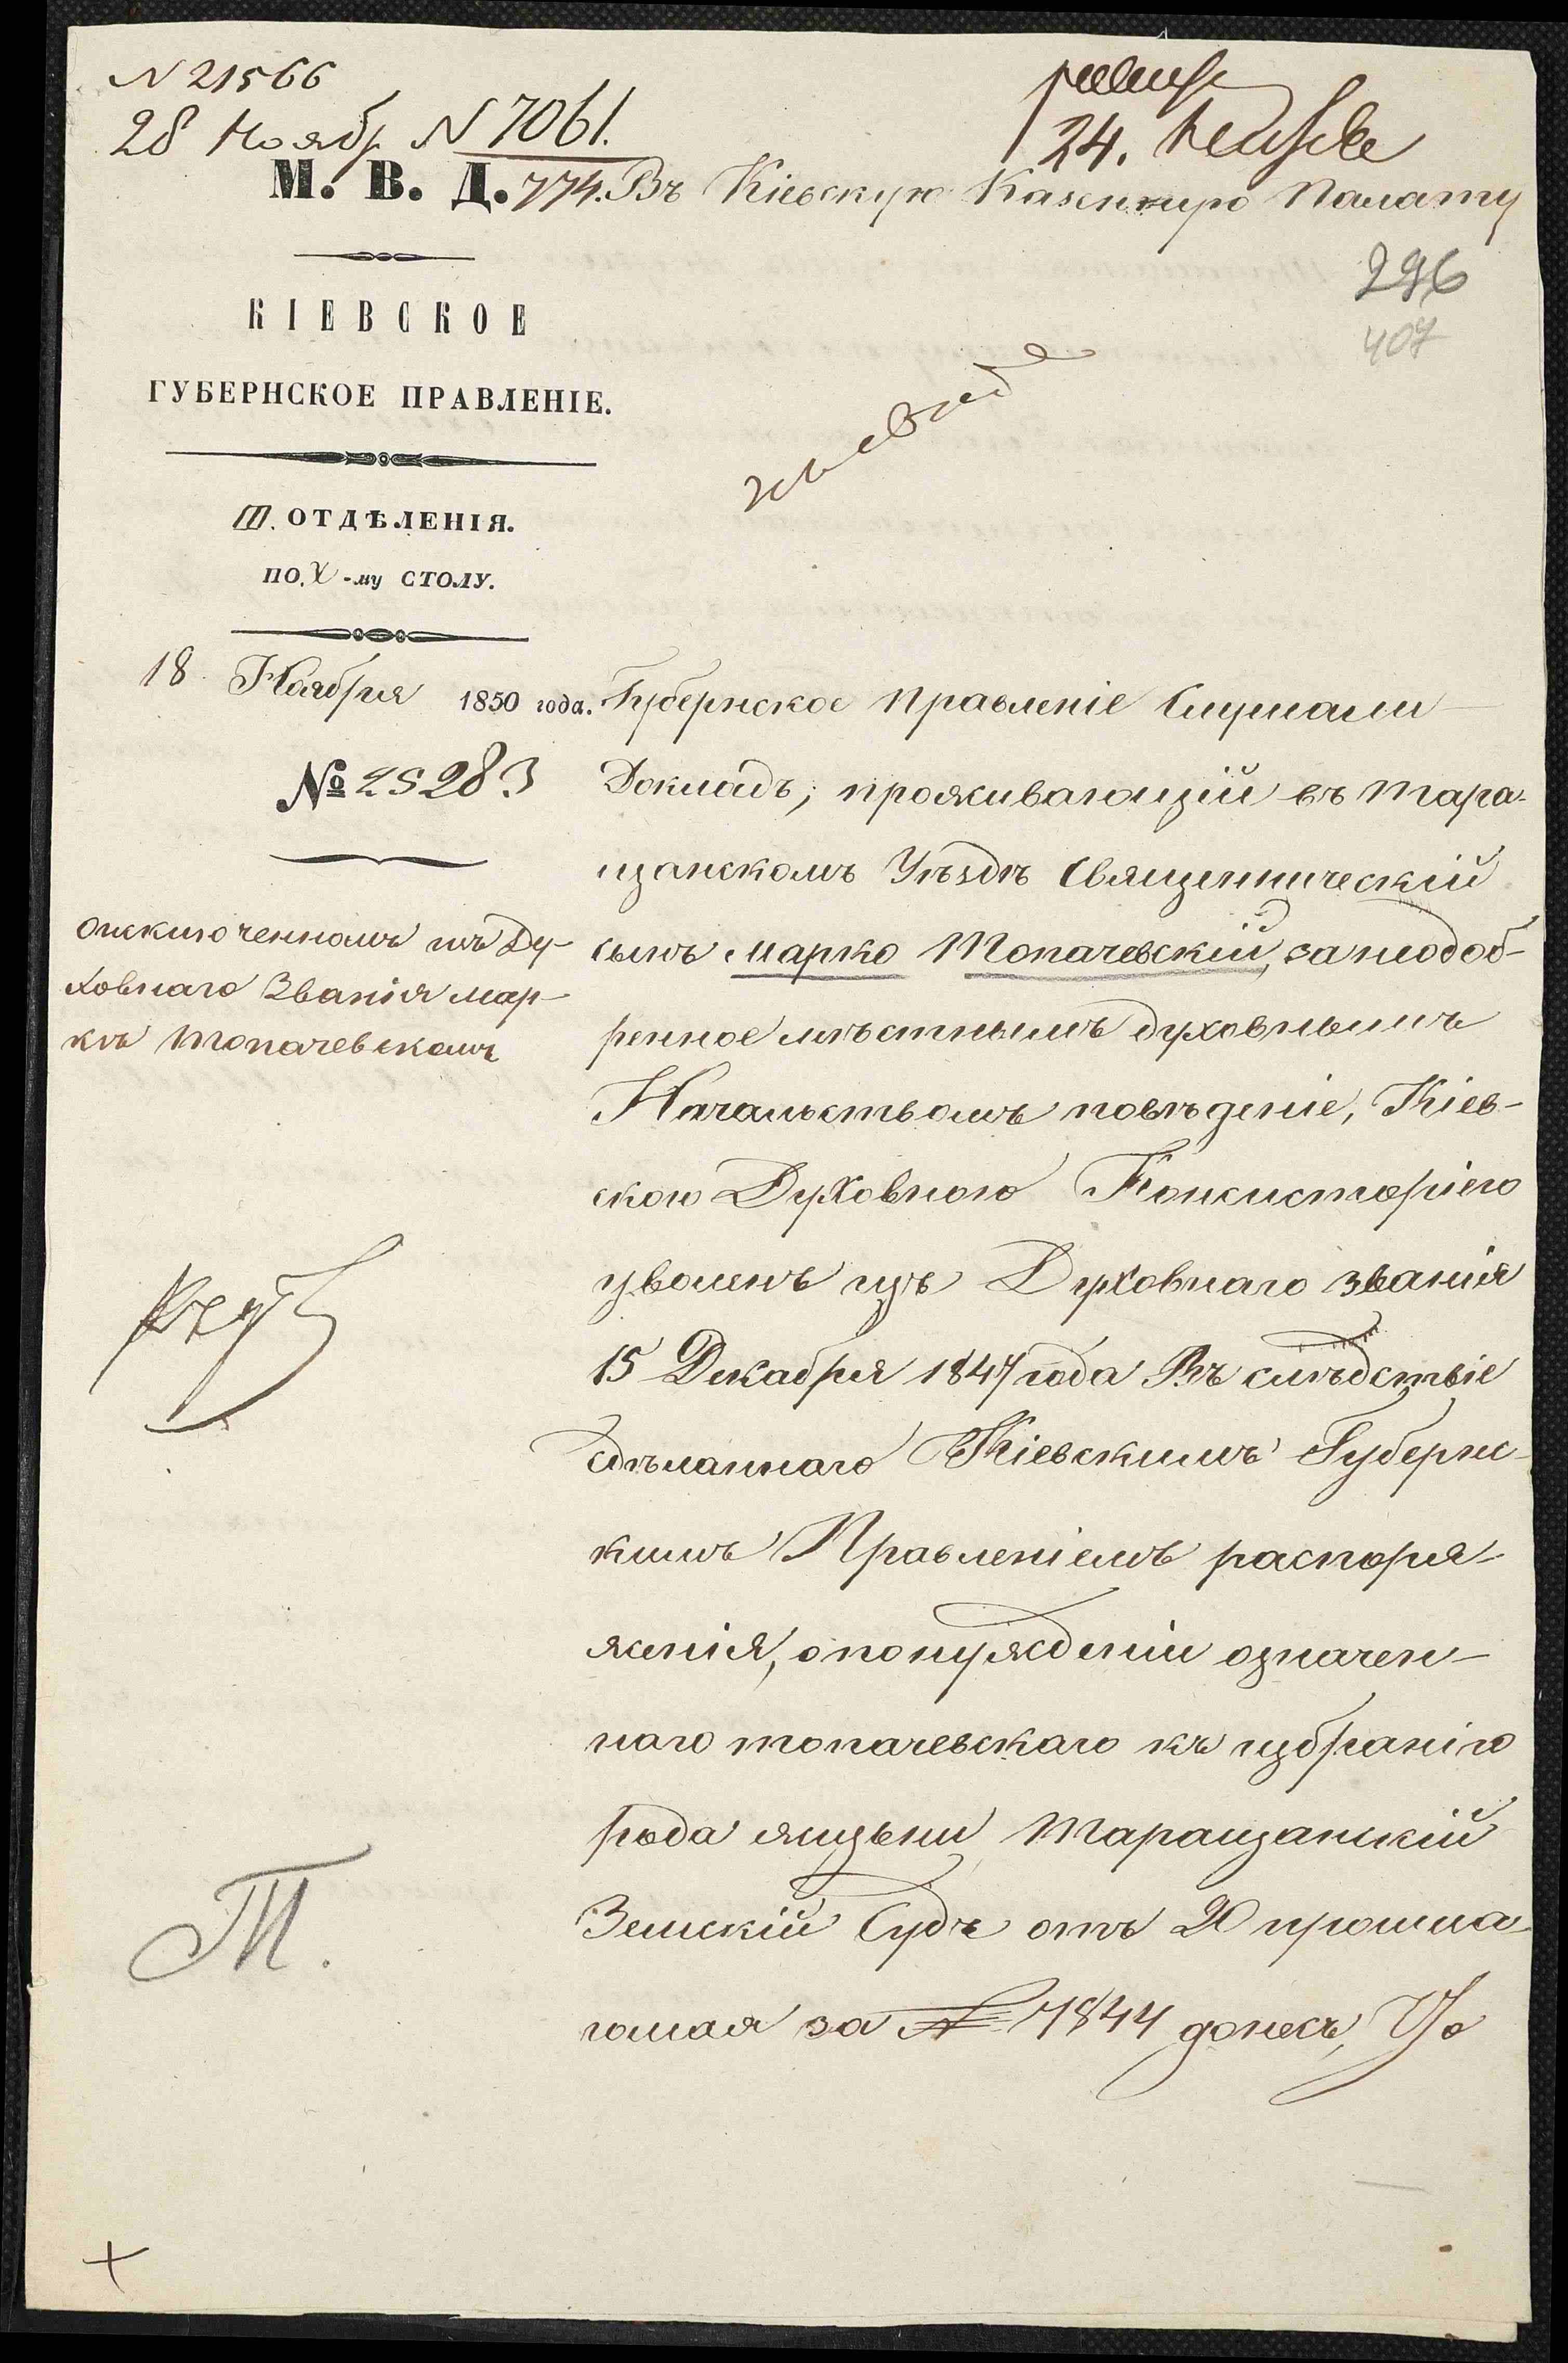 N 21566
28 Ноябр N 7061.
24.
М. В. Д. 774. Въ Кіевскую Казенную Палату
296
407
КІЕВСКОЕ
ГУБЕРНСКОЕ ПРАВЛЕНІЕ.
III. ОТДѢЛЕНІЯ.
ПО. V -му СТОЛУ.
18 Ноября 1850 года.
№ 25283
О исключенномъ изъ Ду-
ховнаго Званія Мар-
кѣ Топачевскомъ
Губернское Правленіе Слушали
Докладъ, проживающій въ Тара-
щанскомъ Уѣздѣ Священническій
сынъ Марко Топачевскій, за неодоб-
ренное мѣстнымъ духовнымъ
Начальствомъ поведеніе, Кіев-
скою Духовною Консисторіею
уволенъ изъ Духовнаго званія
15 Декабря 1847 года Въ слѣдствіе
сдѣланнаго Кіевскимъ Губернс-
кимъ Правленіемъ распоря-
женія, о понужденіи означен-
наго Топачевскаго къ избранію
рода жизни Таращанскій
Земскій Судъ отъ 20 прошла-
го мая за № 7844 донесъ, Что
Т.